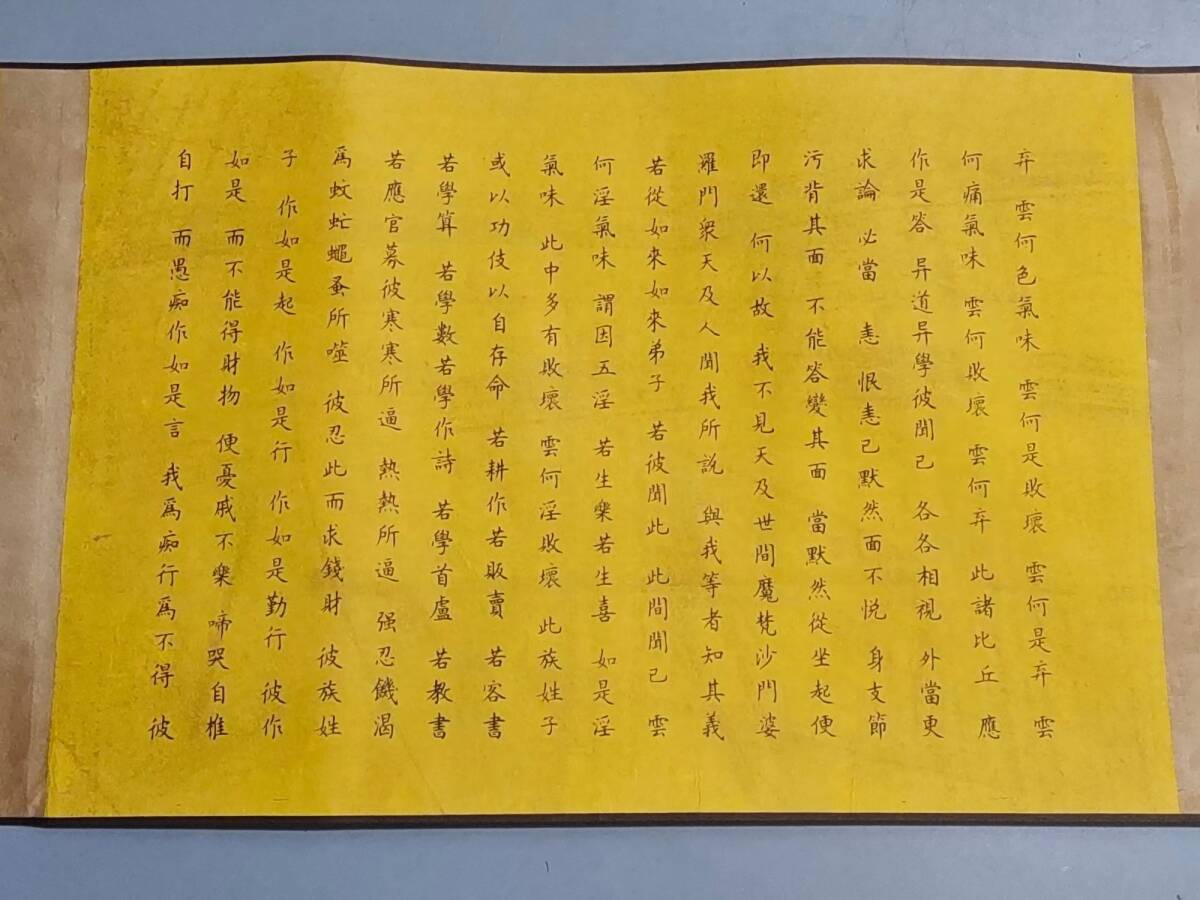 弃 雲何色氣味 雲何是敗壞 雲何是弃 雲
何痛氣味 雲何敗壞 雲何弃 此諸比丘 應
作是答 异道异學彼聞已 各各相視 外當更
求論 必當 恚 恨恚已默然面不悦 身支節
污背其面 不能答變其面 當默然從坐起便
即還 何以故 我不見天及世間魔梵沙門婆
羅門衆天及人聞我所説 與我等者知其義
若從如來如來弟子 若彼聞此 此間聞已 雲
何淫氣味 謂因五淫 若生樂若生喜 如是淫
氣味 此中多有敗壞 雲何淫敗壞 此族姓子
或以功伎以自存命 若耕作若販賣 若容書
若學算 若學數若學作詩 若學首盧 若教書
若應官募彼寒寒所逼 熱熱所逼 强忍饑渴
爲蚊虻蠅蚤所噬 彼忍此而求錢財 彼族姓
子 作如是起 作如是行 作如是勤行 彼作
如是 而不能得財物 便憂戚不樂 啼哭自椎
自打 而愚痴作如是言 我爲痴行爲不得 彼